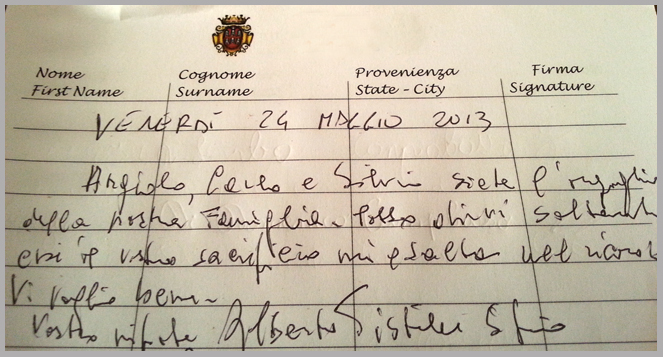 Nome Cognome Provenienza Firma
First Name Surname State - City Signature
VENERDÌ 24 MAGGIO 2013
Angiolo, Carlo e Silvio siete l'orgoglio
della nostra Famiglia. Posso dirvi soltanto
che il vostro sacrificio mi esalta nel ricordo
Vi voglio bene.
Vostro nipote Alberto